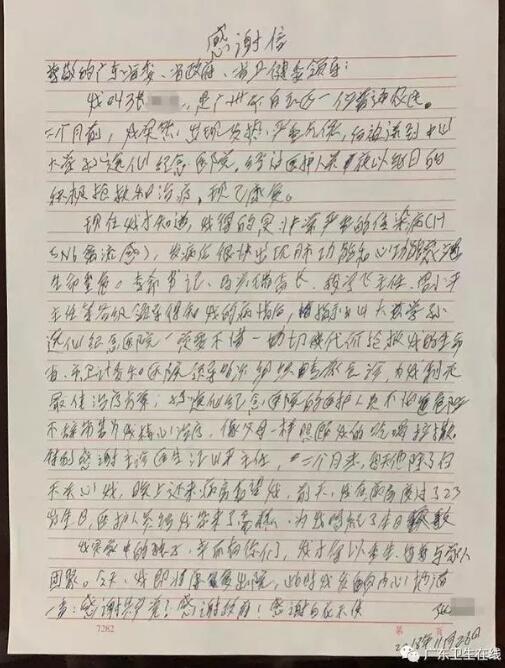 感谢信
尊敬的广东省委、省政府、省卫健委领导：
我叫张 ，是广州市白云区一位普通农民。
二个月前，我突然出现发热、严重气促，后被送到中山
大学孙逸仙纪念医院，经过医护人员夜以继日的
积极抢救和治疗，现已康复。
现在我才知道，我得的是非常严重的传染病(H
5N6禽流感)，发病后很快出现肺功能和心功能
生命垂危。李希书记、马兴瑞省长、段宇飞主任、
主任等各级领导得知我的病情后，指示中山大学孙
逸仙纪念医院一定要不惜一切代价抢救我的生命
省、市卫计委和医院领导多次组织专家会诊，为我制定
最佳治疗方案；孙逸仙纪念医院的医护人员不怕
为我精心治疗，像父母一样照顾我的吃喝拉撒。
特别感谢主诊医生江山平主任，二个月来，每天他除了白
天关心我，晚上还来病房看望我，前天，我在病房度过了23
岁生日，医护人员给我带来了蛋糕，为我唱起了生日歌
你们，我才得以重生，与家人
团聚。今天，我即将康复出院，此时我发自内心地道
一声：感谢共产党！感谢政府！感谢白衣天使
张
2018年11月26日
7282
第 页
广东卫生在线